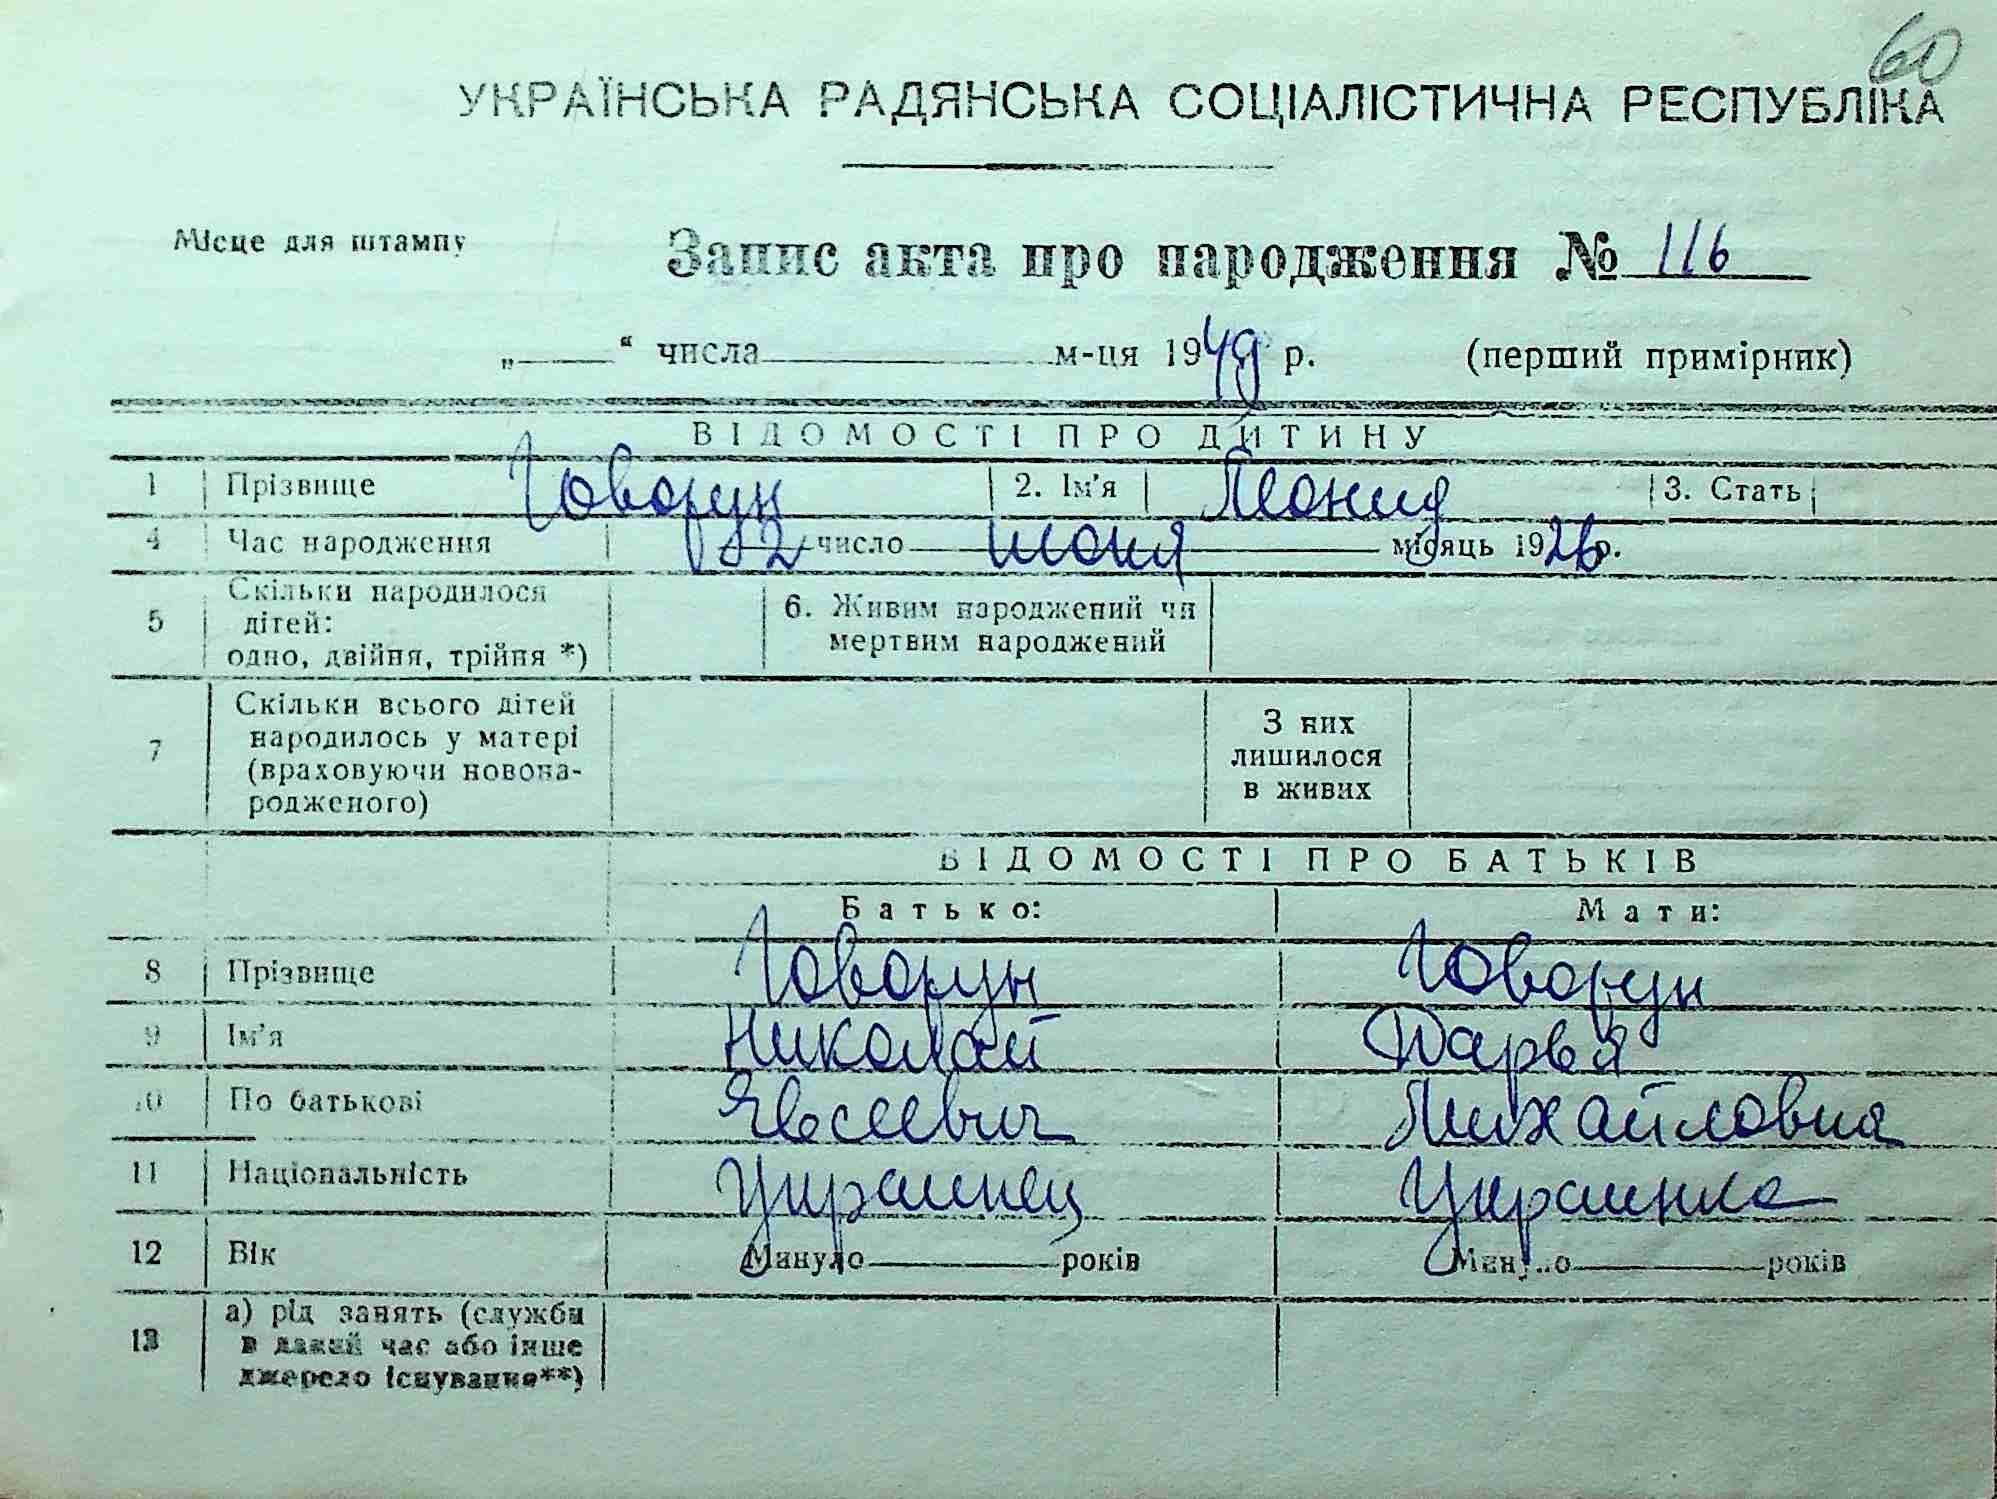 60
УКРАЇНСЬКА РАДЯНСЬКА СОЦІАЛІСТИЧНА РЕСПУБЛІКА
Місце для штампу
Запис акта про народження № 116
„ “ числа м-ця 1949 р. (перший примірник)
ВІДОМОСТІ ПРО ДИТИНУ
1 Прізвище Говорун 2. Ім'я Леонид 3. Стать
4 Час народження 2 число июня місяць 1926 р.
5 Скільки народилося дітей: одно, двійня, трійня *) 6. Живим народжений чи мертвим народжений
7 Скільки всього дітей народилось у матері (враховуючи новонародженого) З них лишилося в живих
ВІДОМОСТІ ПРО БАТЬКІВ
Батько: Мати:
8 Прізвище Говорун Говорун
9 Ім'я Николай Дарья
10 По батькові Явсеевич Михайловна
11 Національність Украинец Украинка
12 Вік Минуло років Минуло років
13 а) рід занять (служби в даний час або інше джерело існування**)